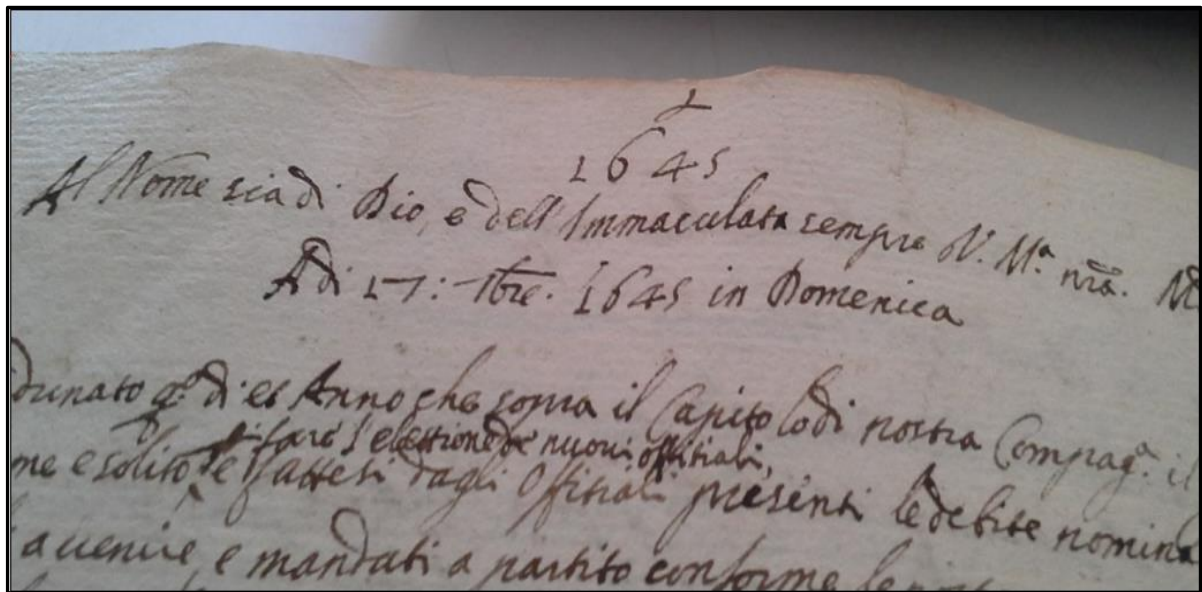 1
1645
Al Nome sia di Dio, e dell'Immaculata sempre V. M.ª nrã. M
Adi 17: 7bre. 1645 in Domenica
dunato q.º dì et Anno che sopra il Capitolo di nostra Compag.ª il
si fare l'elettione de nuovi offitiali,
me e solito, e fattesi dagli Offitiali presenti le debite nomina
a venire, e mandati a partito conforme le